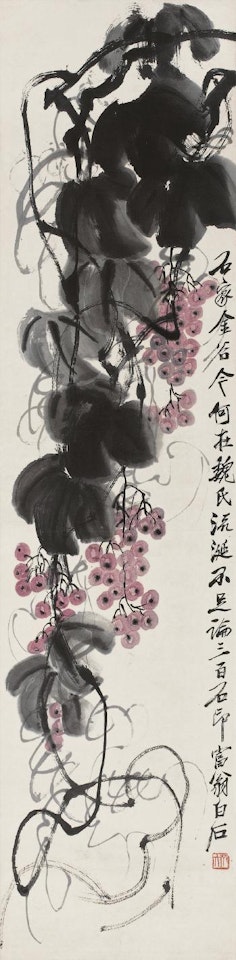 石家金谷今何在魏氏流涎不足論三百石印富翁白石